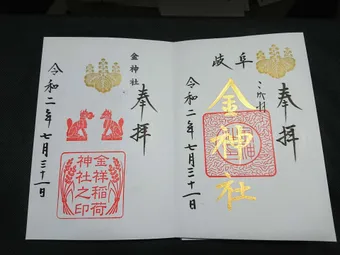 奉拝
岐阜
金神社
令和二年七月三十一日
奉拝
金神社
金祥稲荷
神社之印
令和二年七月三十一日